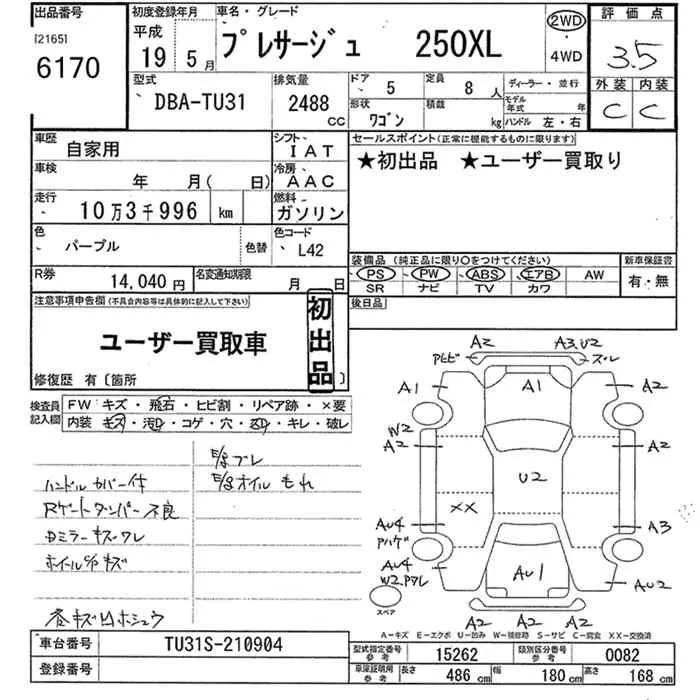 出品番号 初度登録年月 車名・グレード 評価点
[2165] 平成 2WD
6170 19 5月 プレサージュ 250XL 4WD 3.5
型式 排気量 ドア 5 定員 8人 ディーラー・並行 外装 内装
DBA-TU31 2488cc 形状 ワゴン 積載 kg モデル年式 年 C C
ハンドル 左・右
車歴 自家用 シフト IAT セールスポイント(正常に機能するものに限ります)
車検 年 月( 日) 冷房 AAC ★初出品 ★ユーザー買取り
走行 10万3千996 km 燃料 ガソリン
色 パープル 色替 色コード L42
装備品(純正品に限り○をつけてください) 新車保証書
R券 14,040円 名変通知期限 月 日 PS PW ABS エアB AW 有・無
SR ナビ TV カワ
注意事項申告欄(不具合内容等は具体的に記入して下さい) 後日品
ユーザー買取車 初出品
修復歴 有〔箇所 〕
検査員記入欄 FW キズ・飛石・ヒビ割・リペア跡・×要
内装 キズ・汚れ・コゲ・穴・キレ・破レ
E/gブレ
ハンドルカバー付 E/gオイルもれ
Rゲートダンパー不良
Dミラーキズワレ
ホイールC/Pキズ
A2 A3,U2
アヒビ ズレ
A1 A1 A2
W2
A2 A2
U2
XX
AU4 A3
アハゲ
AU4
W2,アワレ AU1 AU2
スペア
A2 A2 A2
A-キズ E-エクボ U-凹み W-補修跡 S-サビ C-腐食 XX-交換済
車台番号 TU31S-210904
登録番号
型式指定番号 参考 15262 類別区分番号 参考 0082
車庫証明用 参考 長さ 486cm 幅 180cm 高さ 168cm